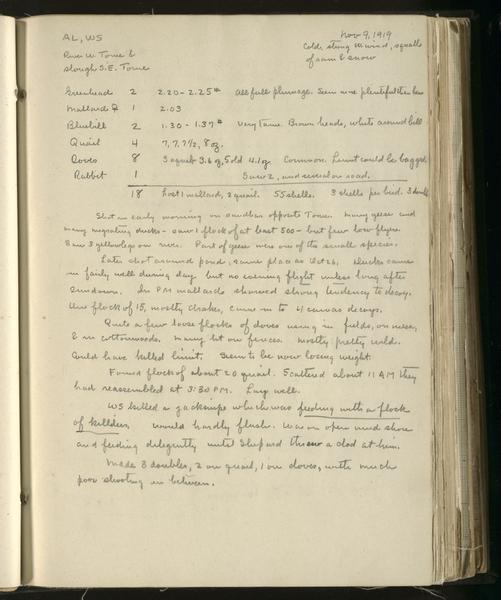 AL, WS
Nov 9, 1919
River W. Tome &
Slough S.E. Tome
Cold, strong W. wind, squalls
of rain & snow
Greenhead 2 2.20 - 2.25# All full plumage. Seem more plentiful than
Mallard ♀ 1 2.03
Bluebill 2 1.30 - 1.37# Very tame. Brown heads, white around bill
Quail 4 7, 7, 7½, 8 oz.
Doves 8 3 4.1 oz Common. Limit could be bagged
Rabbit 1 Saw 2, and several on road.
18 Lost 1 mallard, 2 quail. 55 shells. 3 shells per bird. 3 doubles
Shot in early morning on sandbar opposite Tome. Many geese and
many migrating ducks - saw 1 flock of at least 500 - but few low flyers.
Saw 3 yellowlegs on river. Part of geese were one of the small species.
Later shot around pond, same place as Oct 26. Ducks came
in fairly well during day but no evening flight unless long after
sundown. In PM mallards showed strong tendency to decoy.
One flock of 15, mostly drakes, came in to 4 canvas decoys.
Quite a few loose flocks of doves using in fields, on mesa,
& in cottonwoods. Many sit on fences. Mostly pretty wild.
Could have killed limit. Seem to be now losing weight.
Found flock of about 20 quail. Scattered about 11 AM they
had reassembled at 3:30 PM. Lay well.
WS killed a jacksnipe which was feeding with a flock
of killdeer. Would hardly flush. Was on open mud shore
and feeding diligently until Shepard threw a clod at him.
Made 3 doubles, 2 on quail, 1 on doves, with much
poor shooting in between.